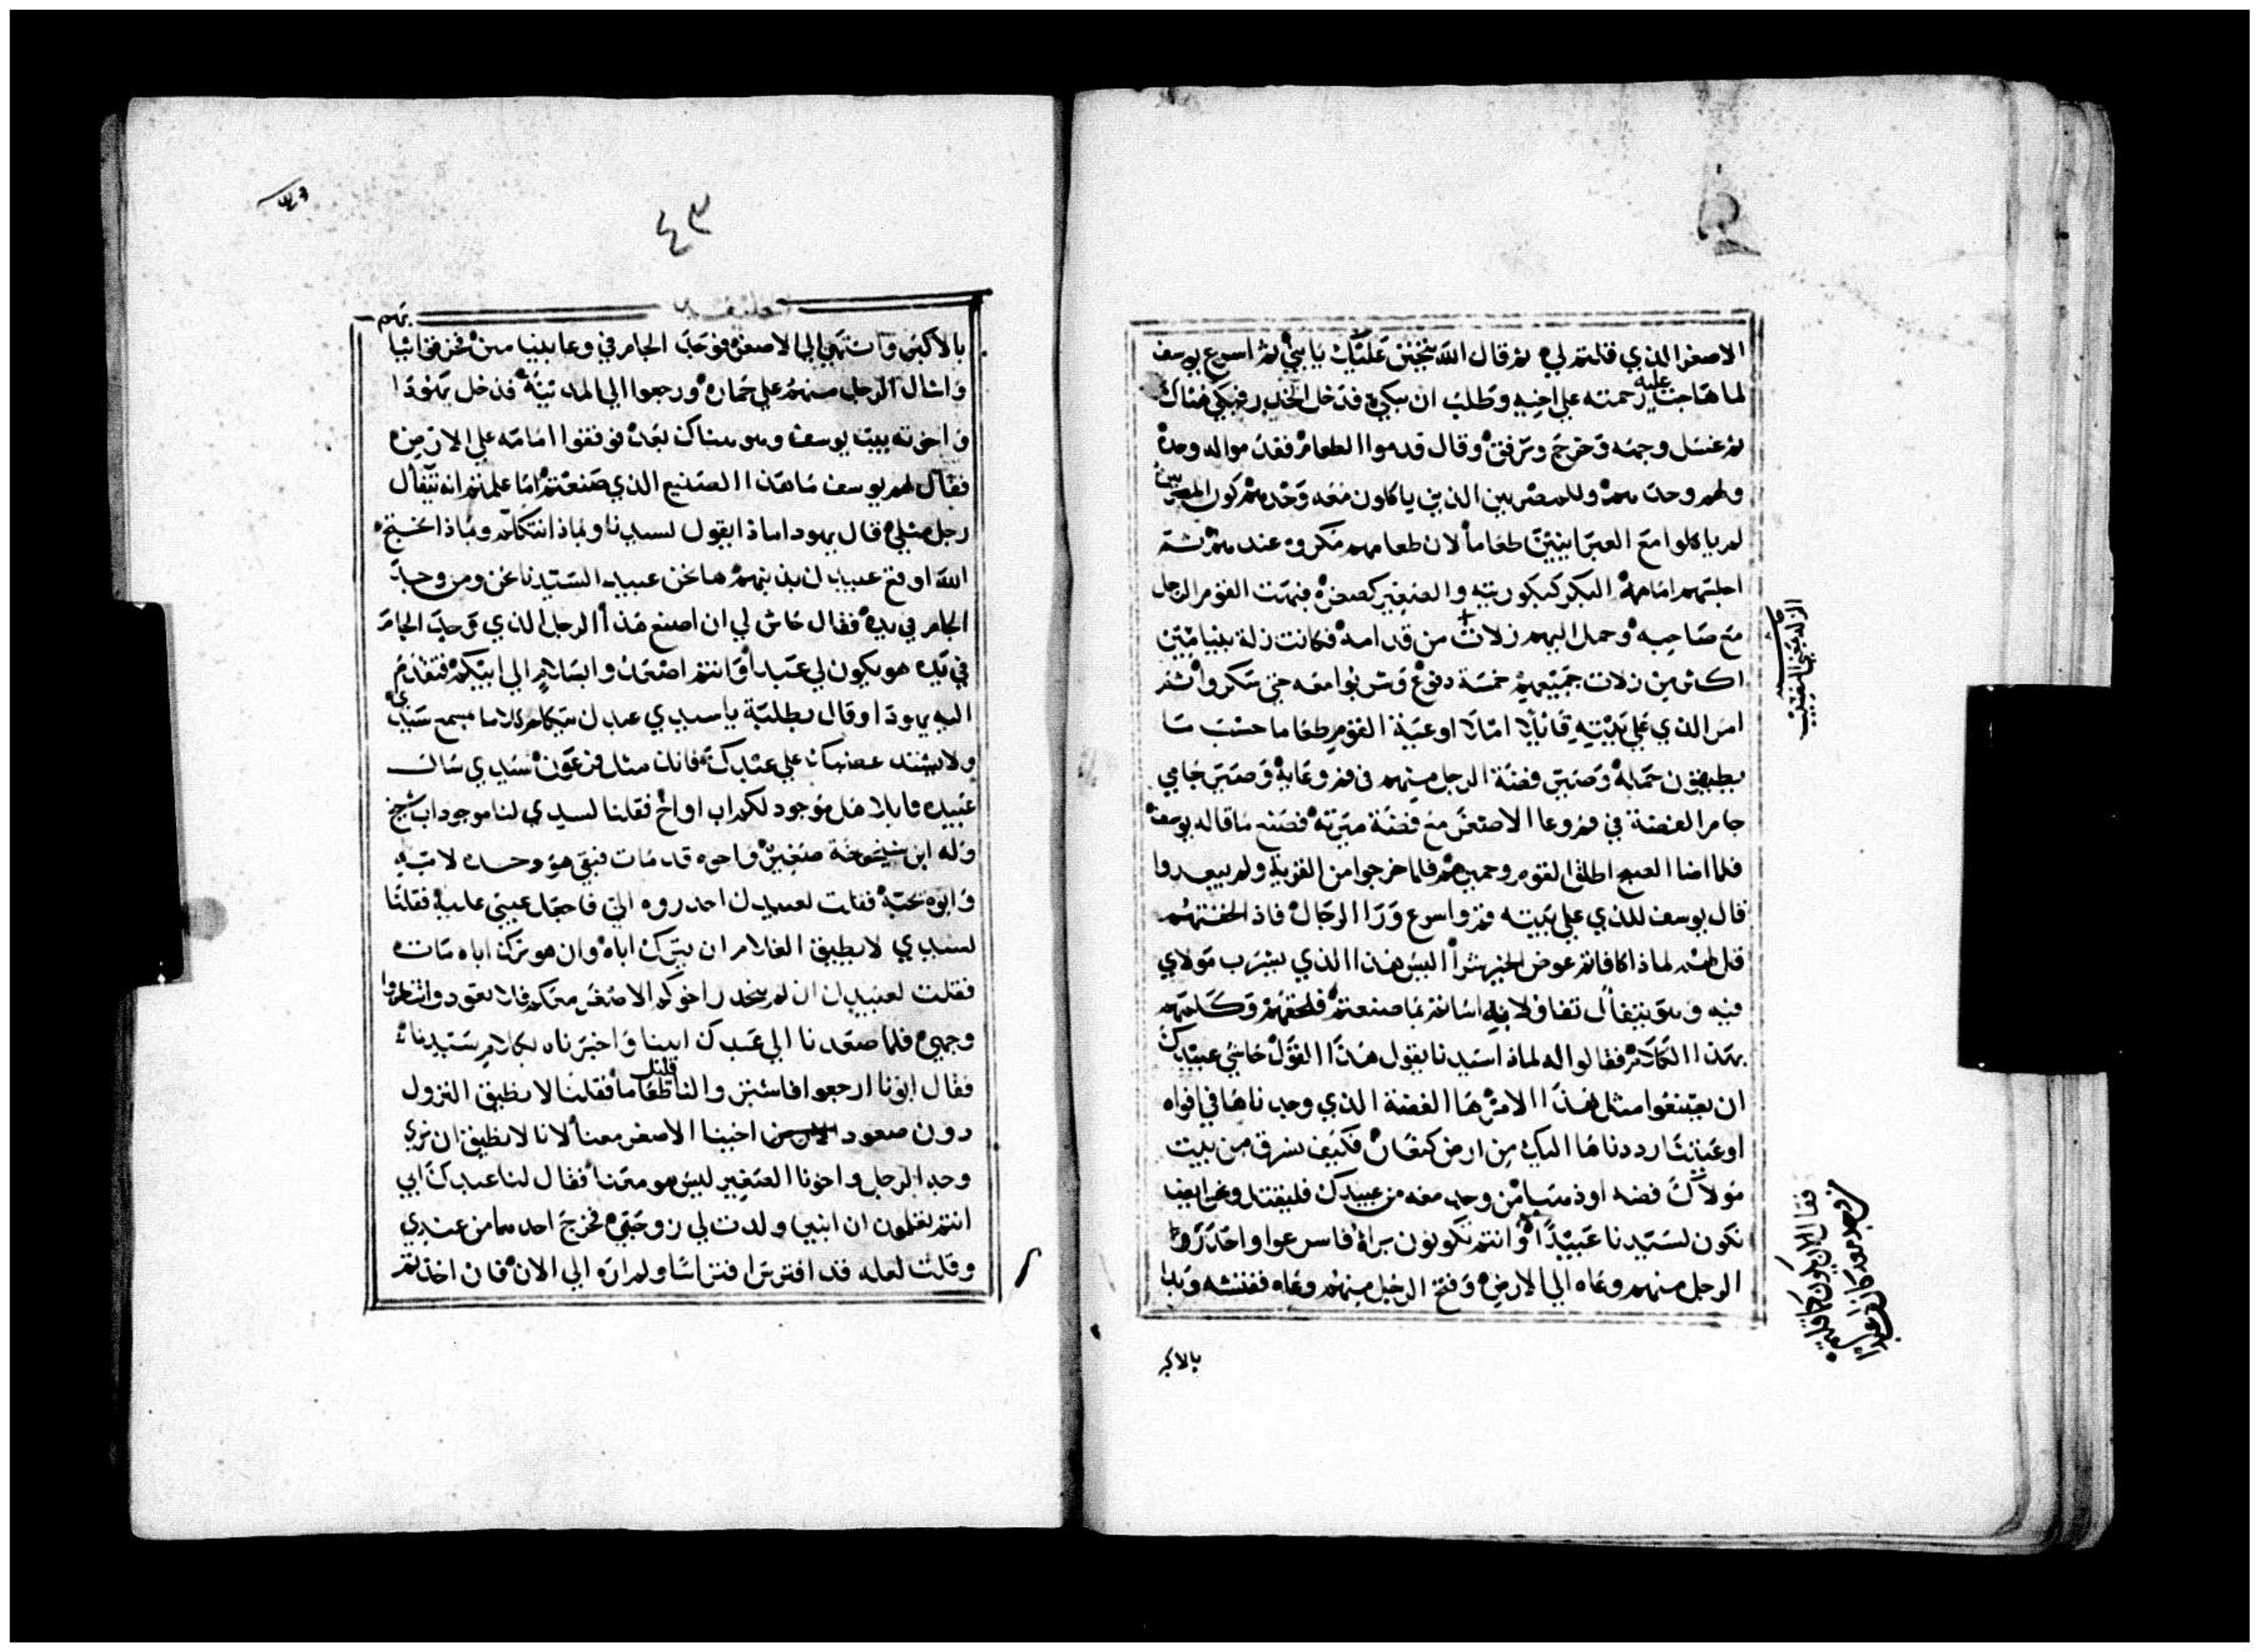 الاصغر الذي قلتم لي ثم قال الله يتحنن عليك يا بني ثم اسرع يوسف
لما هاجت عليه رحمته علي اخيه وطلب ان يبكي فدخل الخدر فبكي هناك
ثم غسل وجهه وخرج وترفق وقال قدموا الطعام فقدموا له وحده
ولهم وحدهم وللمصريين الذين ياكلون معه وحدهم كون المصريين
لم ياكلوا مع العبرانيين طعاماً لان طعامهم مكروه عندهم ثم
اجلسهم امامه البكر كبكوريته والصغير كصغره فبهت القوم الرجل
مع صاحبه وحمل اليهم زلات من قدامه فكانت زلة بنيامين
اكثر من زلات جميعهم خمسة دفوع وشربوا معه حتي سكروا ثم
امر الذي علي بيته قايلا املا اوعية القوم طعاما حسب ما
يطيقون حمله وصير فضة الرجل منهم في فم وعايه وصير جامي
جام الفضة في فم وعا الاصغر مع فضة ميرته فصنع ما قاله يوسف
فلما اضا الصبح اطلق القوم وحميرهم فلما خرجوا من القرية ولم يبعدوا
قال يوسف للذي علي بيته قم واسرع ورا الرجال فاذا لحقتهم
قل لهم لماذا كافاتم عوض الخير شراً اليس هذا الذي يشرب مولاي
فيه وهو يتفأل تفاولا به اساتم بما صنعتم فلحقهم وكلمهم
بهذا الكلام فقالوا له لماذا سيدنا يقول هذا القول حاشي عبيدك
ان يصنعوا مثل هذا الامر ها الفضة الذي وجدناها في افواه
اوعيتنا رددناها اليك من ارض كنعان فكيف نسرق من بيت
مولاك فضه او ذهبا من وجد معه من عبيدك فليقتل ونحن ايضا
نكون لسيدنا عبيداً وانتم تكونون براة فاسرعوا واحدروا
الرجل منهم وعاه الي الارض وفتح الرجل منهم وعاه ففتشه وبدا
بالاكبر
الزله بمعني النصيب
٤٣
بالاكبر وانتهي الي الاصغر فوجد الجام في وعا بنيامين فخرقوا ثيا
بهم
واشال الرجل منهم علي حماره ورجعوا الي المدينة فدخل يهودا
واخوته بيت يوسف وهو هناك بعد فوقفوا امامه علي الارض
فقال لهم يوسف ما هذا الصنيع الذي صنعتم اما علمتم انه يتفأل
رجل مثلي قال يهودا ماذا يقول لسيدنا وبماذا نتكلم وبماذا نحتج
الله اوقع عبيدك بذنبهم ها نحن عبيد السيدنا نحن ومن وجد
الجام في يده فقال حاش لي ان اصنع هذا الرجل الذي وجد الجام
في يده هو يكون لي عبداً وانتم اصعدوا بسلام الي ابيكم فتقدم
اليه يهودا وقال بطلبة يا سيدي عبدك يتكلم كلاما مسمع سيدي
ولا يشتد غضبك علي عبدك فانك مثل فرعون سيدي سال
عبيده قايلا هل موجود لكم اب او اخ فقلنا لسيدي لنا موجود اب شيخ
وله ابن شيخوخة صغير واخوه قد مات فبقي هو وحده لامه
وابوه يحبه فقلت لعبيدك احدروه الي فاجعل عيني عليه فقلنا
لسيدي لا يطيق الغلام ان يترك اباه وان هو ترك اباه مات
فقلت لعبيدك ان لم ينحدر اخوكم الاصغر معكم فلا تعودوا تنظروا
وجهي فلما صعدنا الي عبدك ابينا واخبرناه بكلام سيدنا
فقال ابونا ارجعوا فاستنزوا لنا قليل طعاماً فقلنا لا نطيق النزول
دون صعود اخينا الاصغر معنا لانا لا نطيق ان نري
وجه الرجل واخونا الصغير ليس هو معنا فقال لنا عبدك ابي
انتم تعلمون ان ابنين ولدت لي زوجتي فخرج احدهما من عندي
وقلت لعله قد افترس افتراسا ولم اره الي الان فان اخذتم